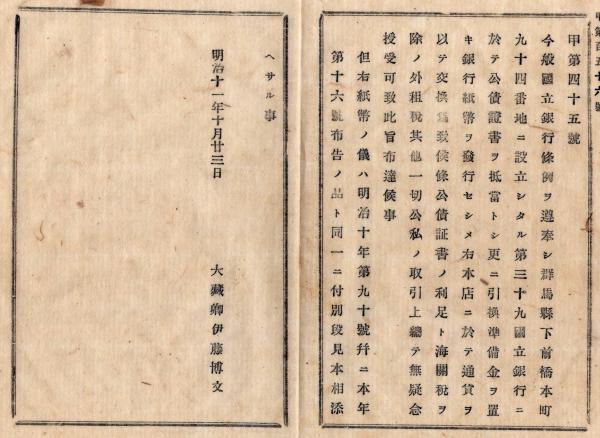 甲第四十五號
今般國立銀行條例ヲ遵奉シ群馬縣下前橋本町
九十四番地ニ設立シタル第三十九國立銀行ニ
於テ公債證書ヲ抵當トシ更ニ引換準備金ヲ置
キ銀行紙幣ヲ發行セシメ右本店ニ於テ通貨ヲ
以テ交換爲致候條公債証書ノ利足ト海關税ヲ
除ノ外租税其他一切公私ノ取引上總テ無疑念
授受可致此旨布達候事
但右紙幣ノ儀ハ明治十年第九十號幷ニ本年
第十六號布告ノ品ト同一ニ付別段見本相添
ヘサル事
明治十一年十月廿三日
大藏卿伊藤博文